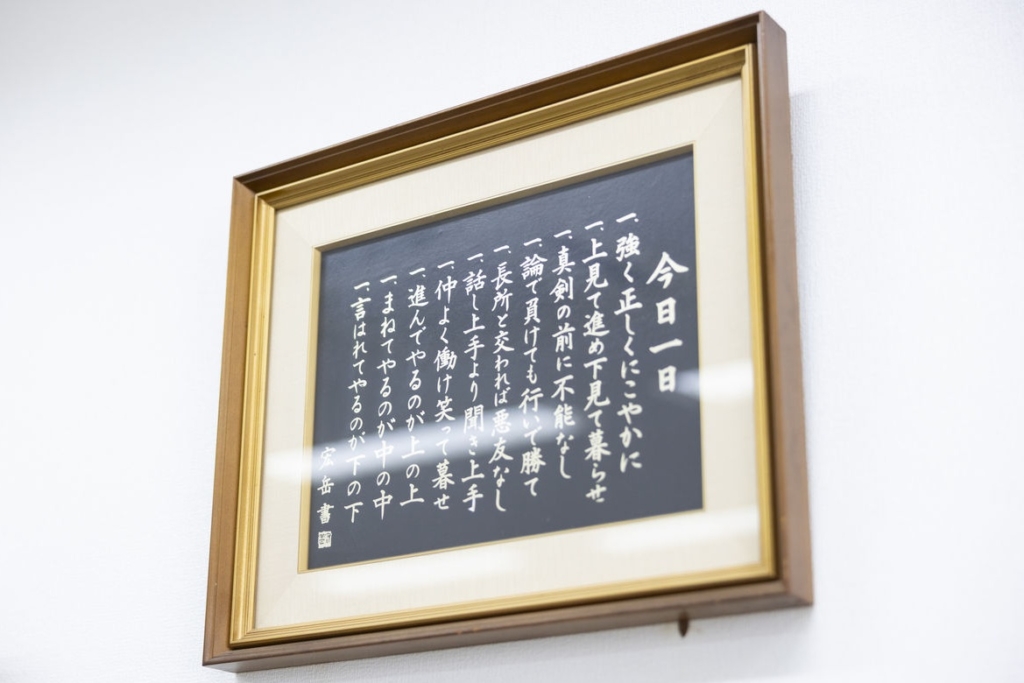 今日一日
一、強く正しくにこやかに
一、上見て進め下見て暮らせ
一、真剣の前に不能なし
一、論で負けても行いで勝て
一、長所と交われば悪友なし
一、話し上手より聞き上手
一、仲よく働け笑って暮せ
一、進んでやるのが上の上
一、まねてやるのが中の中
一、言はれてやるのが下の下
宏岳書